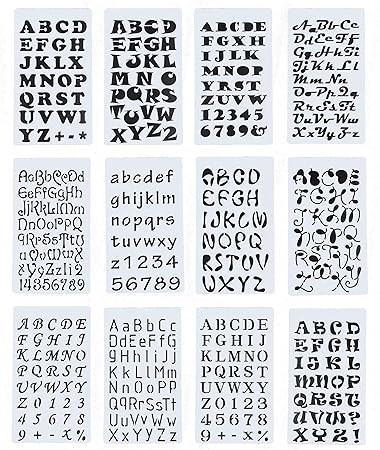 ABCD
EFGH
IJKLX
MNOP
QRST
UVWI
YZ+-*
ABCD
EFGH
IJKL
MNO
PQRS
TUVW
XYZ2
ABCD
EFGXH
IJLK
MNOP
QRST
UVWXYZ
12345
6789&
AaBbCc
DdEeFf
GgHhIi
JjKkLl
MmNn
OoPpQq
RrSsTt
UuVvWw
XxYyZz
AaBbCcDd
EeFfGgHh
IiJjKkLlMm
NnOoPpQ
qRrSsTtU
uVvWwXx
YyZz123
1456789
abcdef
ghijklm
nopqrs
tuvwxy
z1234
56789
ABCD
EFGH
IJKLM
NOPQ
RSTUV
WXYZ
ABCDE
FGHI
ABCDE
FGHIJ
KLMNO
PQRST
UVWXY
Z01234
5678
9+-x%
AaBbCc
DdEeFfG
gHhIiJj
KkLlMm
NnOoPp
QqRrSsT
tUuVvW
wXxYyZz
ABCDE
FGHIJ
KLMNO
PQRST
UVWXY
Z0123
45678
9+-x%
ABCD
EFGH
IJKL
MNOP
QRST
UVW?
XYZ!